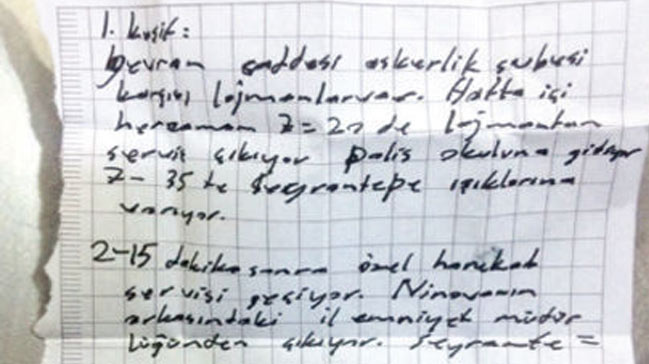 1. keşif:
Gevran caddesi askerlik şubesi
karşısı lojmanlarvar. Hafta içi
herzaman 7=20 de lojmandan
servis çıkıyor polis okuluna gidiyor
7-35 te Seyrantepe ışıklarına
varıyor.
2-15 dakika sonra özel harekat
servisi geçiyor. Ninovanın
arkasındaki il emniyet müdür
lüğünden çıkıyor. Seyrante=